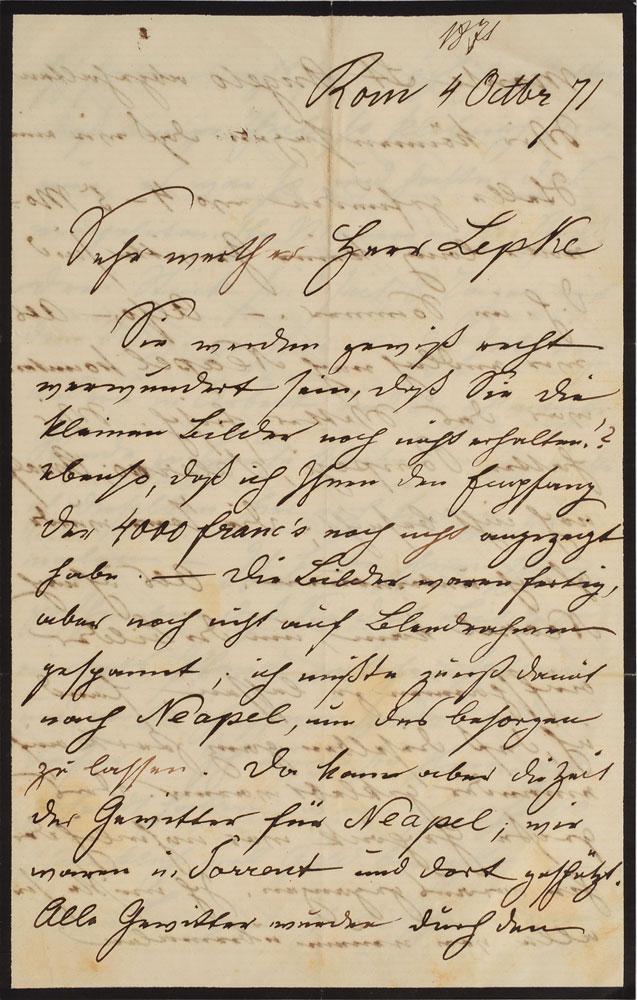 1871
Rom 4 Octbr 71
Sehr werther Herr Lepke
Sie werden gewiß recht
verwundert sein, daß Sie die
kleinen Bilder noch nicht erhalten!?
ebenso, daß ich Ihnen den Empfang
der 4000 franc's noch nicht angezeigt
habe. — Die Bilder waren fertig,
aber noch nicht auf Blendrahmen
gespannt; ich mußte zuerst damit
nach Neapel, um das besorgen
zu lassen. Da kam aber die Zeit
der Gewitter für Neapel; wir
waren in Sorrent und dort geschützt.
Alle Gewitter wurden durch den